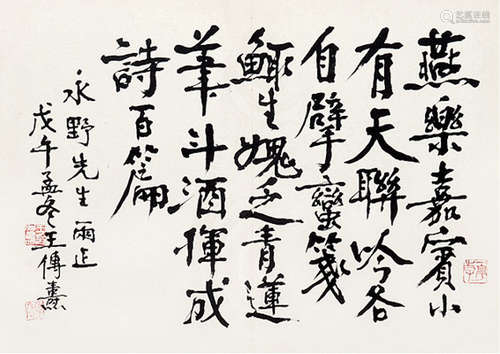 燕樂嘉賓小
有天聯吟各
自擘蠻箋
鲰生媿乏青蓮
筆斗酒揮成
詩百篇
永野先生兩正
戊午孟冬王傳燾